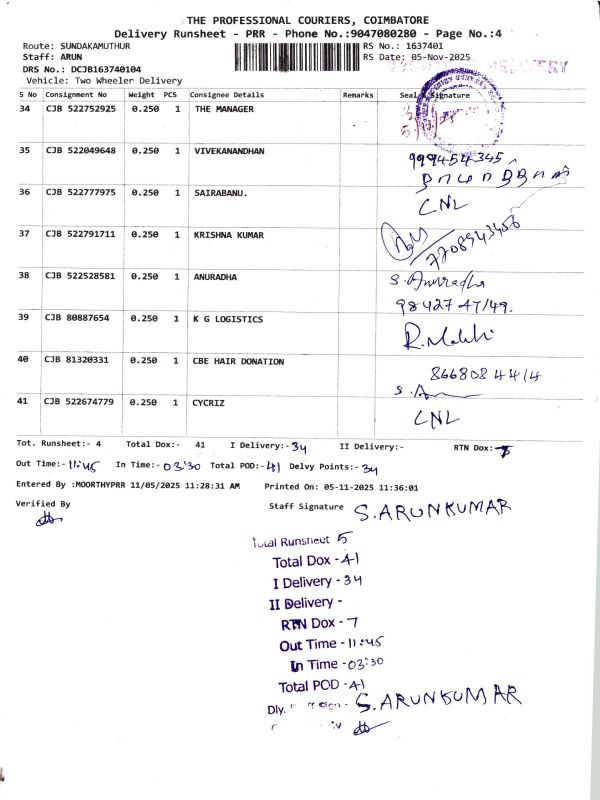 THE PROFESSIONAL COURIERS, COIMBATORE
Delivery Runsheet - PRR - Phone No.:9047080280 - Page No.:4
Route: SUNDAKAMUTHUR RS No.: 1637401
Staff: ARUN RS Date: 05-Nov-2025
DRS No.: DCJB163740104 DELIVERY
Vehicle: Two Wheeler Delivery
S No Consignment No Weight PCS Consignee Details Remarks Seal Signature
34 CJB 522752925 0.250 1 THE MANAGER
35 CJB 522049648 0.250 1 VIVEKANANDHAN 999454345
36 CJB 522777975 0.250 1 SAIRABANU. CNL
37 CJB 522791711 0.250 1 KRISHNA KUMAR 7708943456
38 CJB 522528581 0.250 1 ANURADHA S. Anuradha
98427 47149.
39 CJB 80887654 0.250 1 K G LOGISTICS
40 CJB 81320331 0.250 1 CBE HAIR DONATION 8668084414
41 CJB 522674779 0.250 1 CYCRIZ CNL
Tot. Runsheet:- 4 Total Dox:- 41 I Delivery:- 34 II Delivery:- RTN Dox:- 7
Out Time:- 11:45 In Time:- 03:30 Total POD:- 41 Delvy Points:- 34
Entered By :MOORTHYPRR 11/05/2025 11:28:31 AM Printed On: 05-11-2025 11:36:01
Verified By Staff Signature S.ARUNKUMAR
Total Runsheet 5
Total Dox - 41
I Delivery - 34
II Delivery -
RTN Dox - 7
Out Time - 11:45
In Time - 03:30
Total POD - 41
Dly. S.ARUNKUMAR